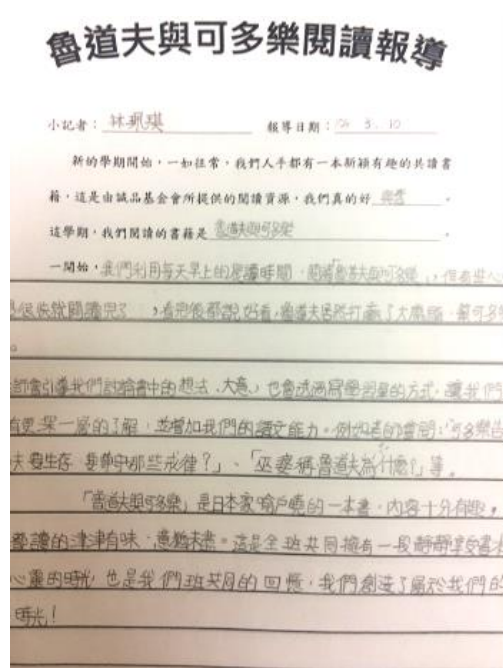 魯道夫與可多樂閱讀報導
小記者：林珮琪 報導日期： 3. 10
新的學期開始，一如往常，我們人手都有一本新穎有趣的共讀書
籍，這是由誠品基金會所提供的閱讀資源，我們真的好
這學期，我們閱讀的書籍是 魯道夫與可多樂
一開始，我們利用每天早上的晨讀時間，閱讀「魯道夫與可多樂」，但有些人
很快就閱讀完了，看完後都說好看，魯道夫居然打贏了大魔頭，幫可多
師會引導我們討論書中的想法、大意，也會透過寫學習單的方式，讓我們
有更深一層的了解，並增加我們的語文能力。例如老師會問：「可多樂告
夫要生存要遵守那些戒律？」、「巫婆稱魯道夫為什麼？」等。
「魯道夫與可多樂」是日本家 一本書，內容十分有趣，
讀的津津有味，意猶未盡。這是全班共同擁有一段靜靜享受書
心靈的時光，也是我們班共同的回憶，我們創造了屬於我們的
時光！